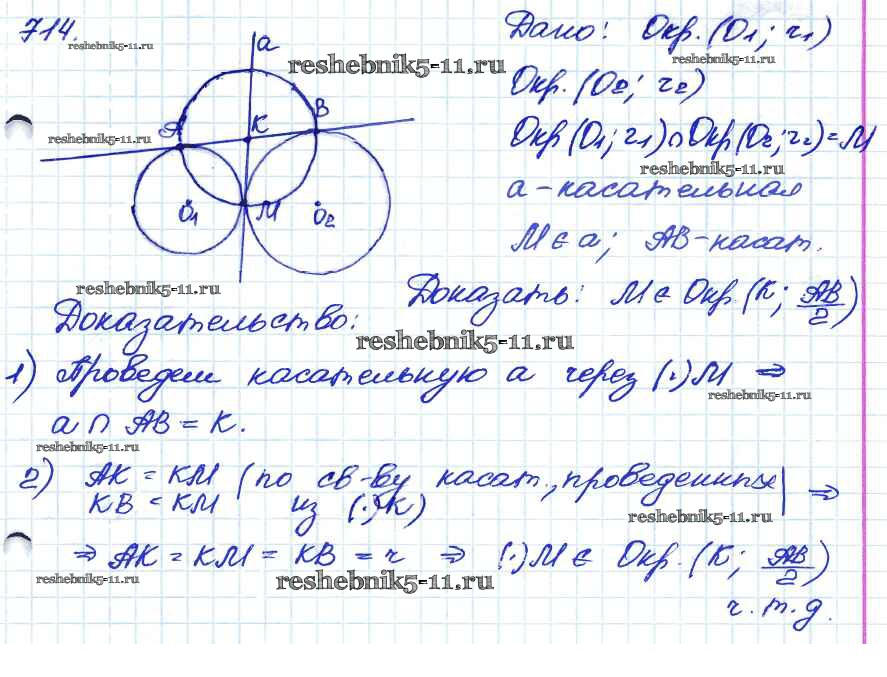 714.
reshebnik5-11.ru
a
reshebnik5-11.ru
A
K
B
reshebnik5-11.ru
O1
M
O2
Дано: Окр. (O1; r1)
reshebnik5-11.ru
Окр. (O2; r2)
Окр (O1; r1) ∩ Окр (O2; r2) = M
reshebnik5-11.ru
a - касательная
M ∈ a; AB - касат.
reshebnik5-11.ru
Доказать: M ∈ Окр. (K; AB/2)
Доказательство:
reshebnik5-11.ru
1) Проведем касательную a через (·) M ⇒
reshebnik5-11.ru
a ∩ AB = K.
reshebnik5-11.ru
2) AK = KM (по св-ву касат., проведенных
KB = KM из (·) K) ⇒
reshebnik5-11.ru
⇒ AK = KM = KB = r ⇒ (·) M ∈ Окр. (K; AB/2)
reshebnik5-11.ru
reshebnik5-11.ru
ч.т.д.